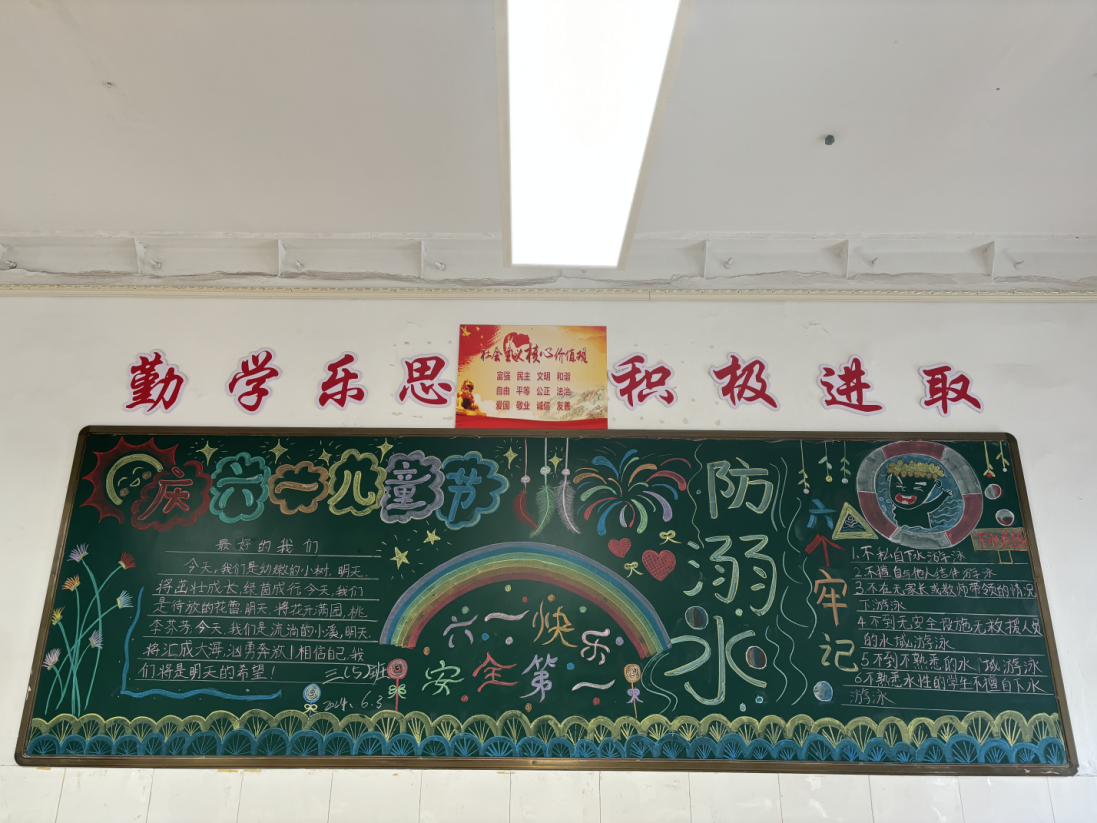 勤学乐思
社会主义核心价值观
富强 民主 文明 和谐
自由 平等 公正 法治
爱国 敬业 诚信 友善
积极进取
庆六一儿童节
最好的我们
今天,我们是幼嫩的小树,明天,
将茁壮成长,绿茵成行,今天,我们
是待放的花蕾,明天,将花开满园,桃
李芬芳,今天,我们是流淌的小溪,明天,
将汇成大海,汹勇奔放!相信自己,我
们将是明天的希望!
三(5)班
2024.6.3
六一快乐
安全第一
防溺水
六个牢记
1.不私自下水游泳
2.不擅自与他人结伴游泳
3.不在无家长或教师带领的情况
下游泳
4.不到无安全设施无救援人员
的水域游泳
5.不到不熟悉的水域游泳
6.不熟悉水性的学生不擅自下水
游泳